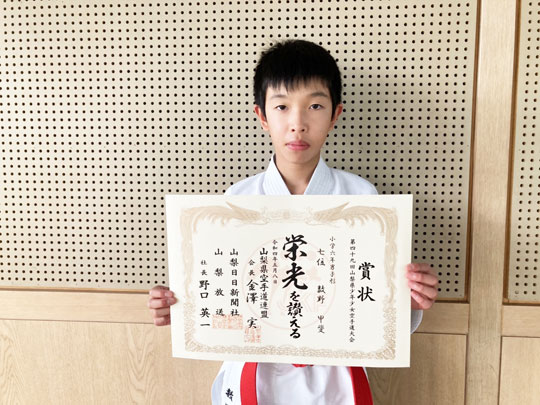 賞状
第四十九回山梨県少年少女空手道大会
小学六年男子形
七位 数野 甲斐
栄光を讃える
令和四年五月八日
山梨県空手道連盟
会長 金澤 実
山梨日日新聞社
山梨放送
社長 野口 英一